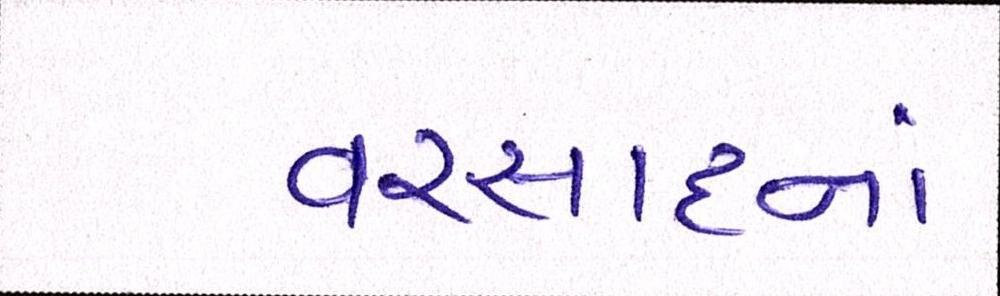 વરસાદનાં